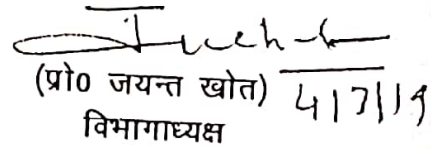 (प्रो० जयन्त खोत)
4/7/19
विभागाध्यक्ष